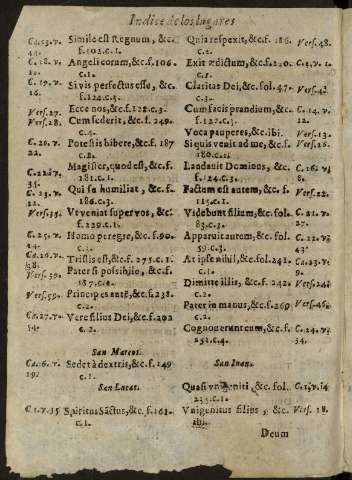 Indice de los lugares
Ca. 13. v. 44. Simile est Regnum, &c. f. 102. c. 1.
C. 18. v. 10. Angeli eorum, &c. f. 106. c. 1.
C. 19. v. 16. Si vis perfectus esse, &c. f. 124. c. 3.
Vers. 27. Ecce nos, &c. f. 128. c. 3.
Vers. 28. Cum sederit, &c. f. 249. c. 4.
C. 20. v. 22. Potestis bibere, &c. f. 187 c. 2.
Magister, quod est, &c. f. 181. c. 1.
C. 23. v. Qui se humiliat, &c. f. 186. c. 3.
Vers. 35. Ut veniat super vos, &c. f. 229. c. 1.
C. 25. v. 14. Homo peregre, &c. f. 90. c. 3.
Ca. 26. v. 38. Tristis est, &c. f. 275. c. 1.
Vers. 39. Pater si possibile, &c. f. 187. c.
Vers. 59. Principes autē, &c. f. 238. c. 2.
Ca. 27. v. 54. Vere filius Dei, &c. f. 202 c. 2.
San Marcos.
Ca. 16. v. 19. Sedet à dextris, &c. f. 149 c. 1.
San Lucas.
C. 1. v. 35 Spiritus Sāctus, &c. f. 161. c. 1.
Quia respexit, &c. f. 186. c. 2. Vers. 48.
Exit ædictum, &c. f. 230. c. 1. C. 2. v. 1.
Claritas Dei, &c. fol. 47. c. 3.
Cum facis prandium, &c. f. c. 2. C. 14. v. 12.
Voca pauperes, &c. ibi. Vers. 13.
Si quis venit ad me, &c. f. 180. c. 2. Vers. 26
Laudavit Dominus, &c. f. 124. c. 3. C. 16. v. 8.
Factem est autem, &c. f. 115. c. 1. Vers. 22.
Videbunt filium, &c. fol. 83. c. 3. C. 21. v. 27.
Apparuit autem, &c. fol. 59. c. 3. C. 22. v. 43
At ipse nihil, &c. f. 242. c. 1. Ca. 23. v. 9.
Dimitte illis, &c. f. 242. c. 2. Vers. 34.
Pater in manus, &c. f. 269 c. 2. Vers. 46.
Cognoverunt eum, &c. f. 251. c. 4. C. 24. v. 34.
San Iuan.
Quasi vnigeniti, &c. fol. 235. c. 1. C. 1. v. 14
Vnigenitus filius, &c. ibi. Vers. 18.
Deum